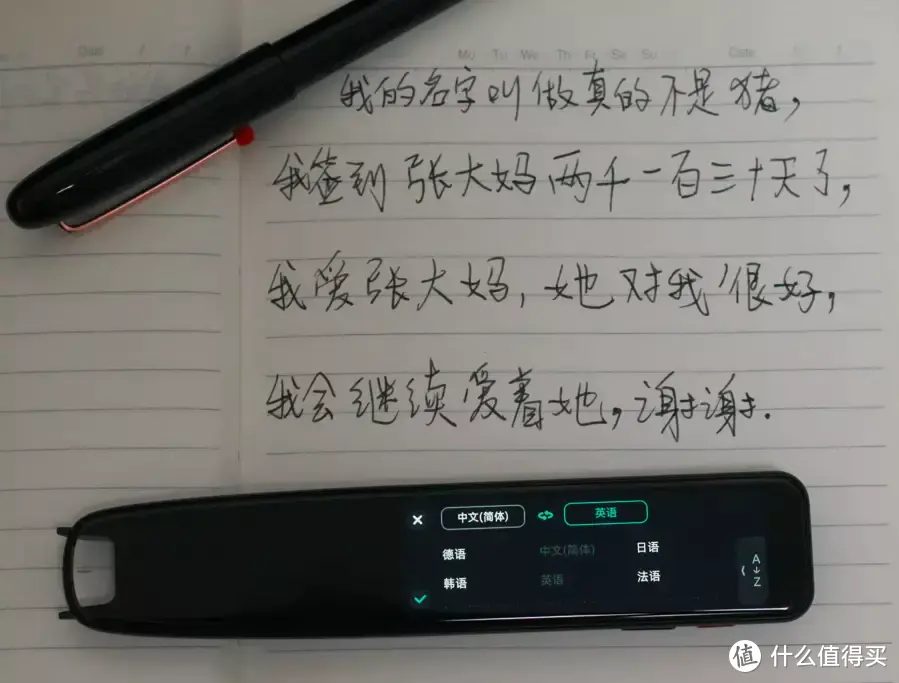 Date / /
Mo Tu We Th Fr Sa Su
Date / /
我的名字叫做真的不是猪，
我签到张大妈两千一百三十天了，
我爱张大妈，她对我很好，
我会继续爱着她，谢谢.
× 中文(简体) 英语
德语 中文(简体) 日语
韩语 英语 法语
A
Z
值 什么值得买